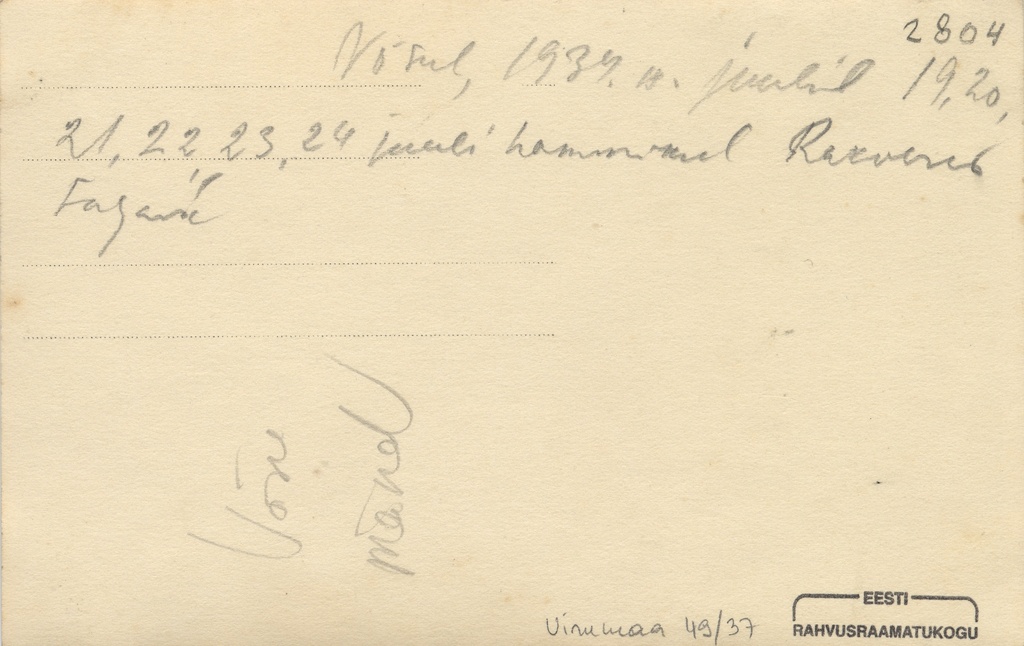 2804
Võsul, 1937. a. juulil 19, 20,
21, 22, 23, 24 juuli hommikul Rakveres
tagasi
Võsu
mänd
Virumaa 49/37
EESTI
RAHVUSRAAMATUKOGU